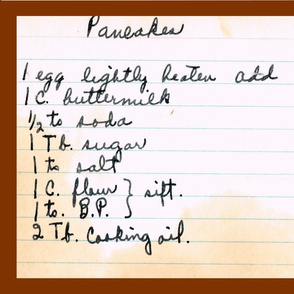 Pancakes
1 egg lightly beaten add
1 C. buttermilk
1/2 to soda
1 Tb. sugar
1 to salt
1 C. flour } sift.
1 to. B.P. }
2 Tb. cooking oil.